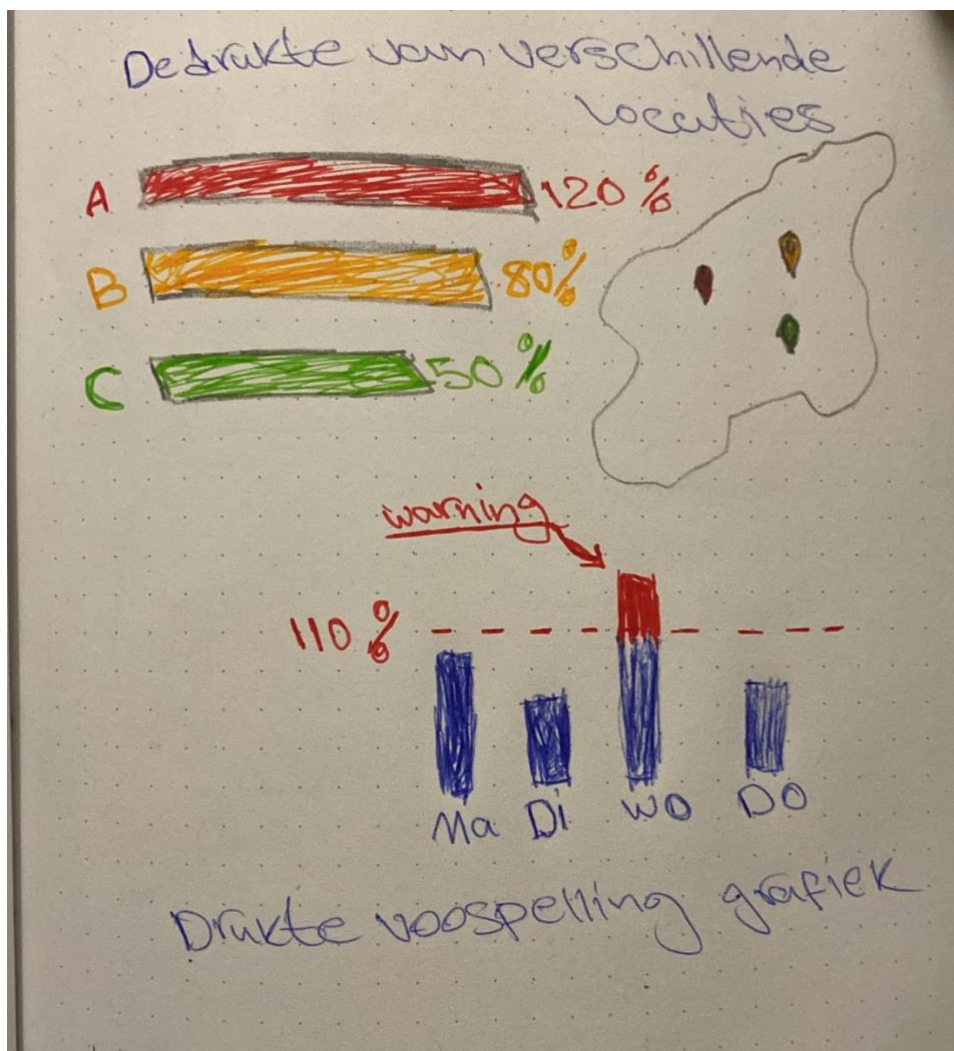 De drukte van verschillende
locaties
A 120%
B 80%
C 50%
warning
110%
Ma Di WO DO
Drukte voospelling grafiek